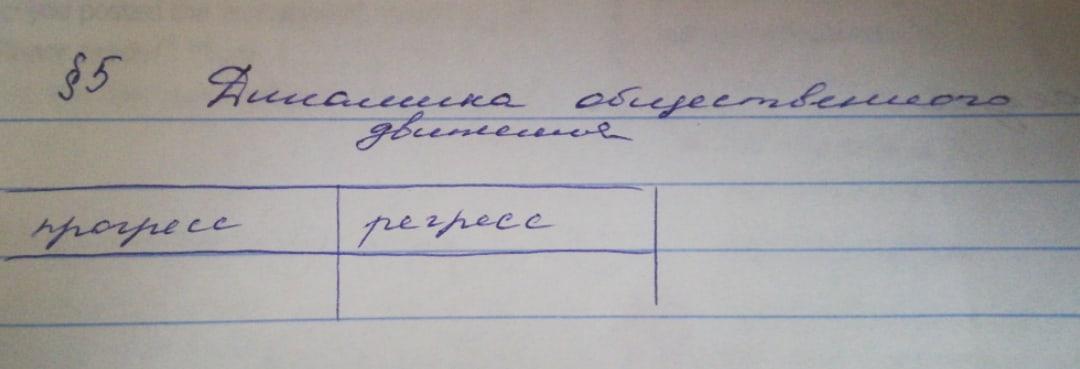 §5 Динамика общественного
движения
прогресс регресс